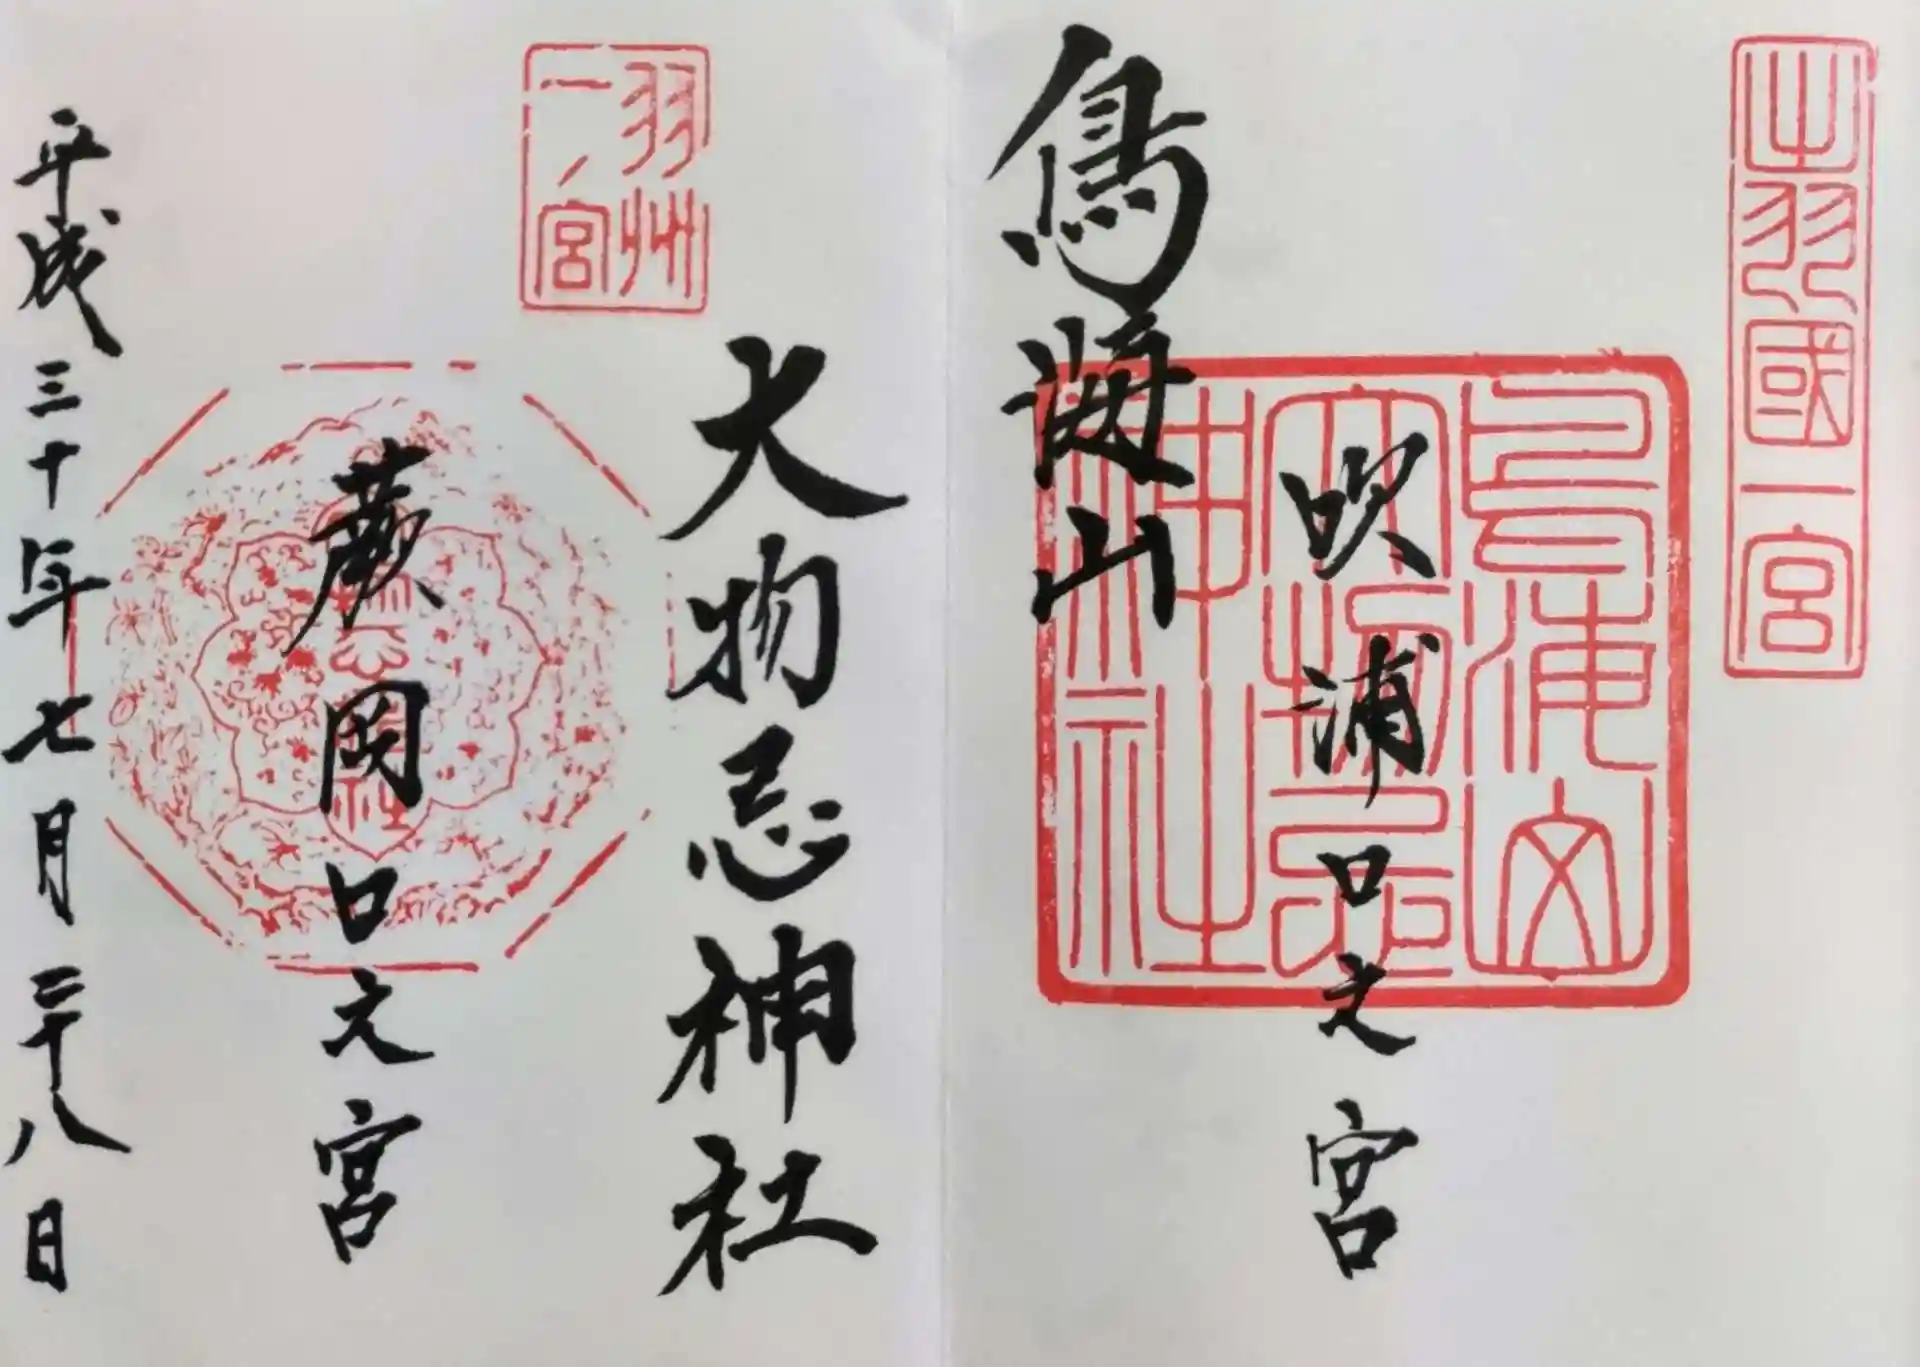 出羽國一宮
吹浦口之宮
鳥海山
鳥海山
大物忌
神社
大物忌神社
羽州
一ノ宮
蕨岡口之宮
平成三十年七月二十八日